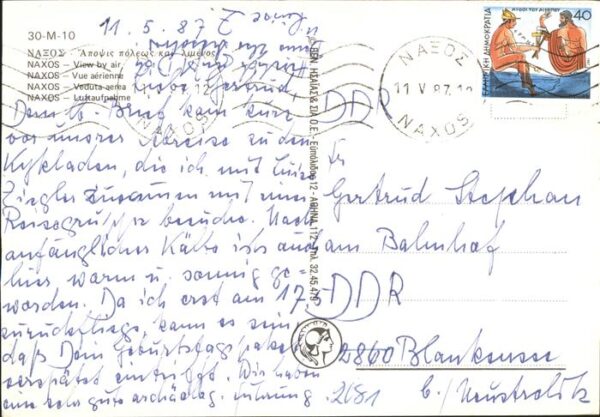 11.5.87
30-M-10
ΝΑΞΟΣ Ἄποψις πόλεως καί λιμένος
NAXOS – View by air
NAXOS – Vue aérienne
NAXOS – Veduta aerea
NAXOS – Luftaufnahme
ΝΑΞΟΣ
11 V 87
NAXOS
ΜΥΘΟΙ ΤΟΥ ΑΙΣΩΠΟΥ
ΕΛΛΗΝΙΚΗ ΔΗΜΟΚΡΑΤΙΑ
40
Gertrud,
Dein Brief kam kurz
vor unserer Abreise zu den
Kykladen, die ich mit Luise
Ziegler zusammen mit einer
Reisegruppe besuche. Nach
anfänglicher Kälte ist auch
hier warm u. sonnig ge-
worden. Da ich erst am 17.5.
zurückfliege, kann es sein,
daß Dein Geburtstags
verspätet eintrifft. Wir haben
eine sehr gute archäolog. Führung
DDR
Gertrud Stephan
am Bahnhof
DDR
2860 Blankensee
2081 b./Neustrelitz
ΑΘΗΝΑ 112 - Τηλ. 32.45.